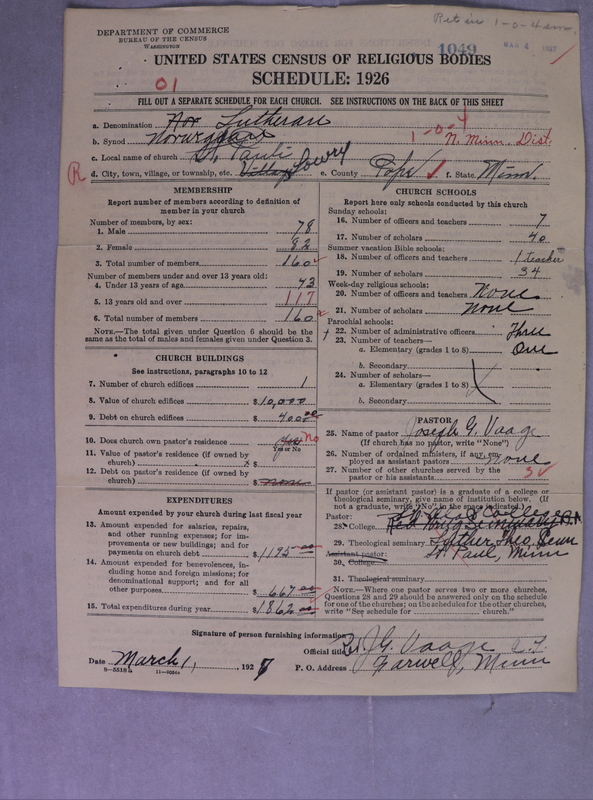 Ret in 1-0-4 em.
DEPARTMENT OF COMMERCE
BUREAU OF THE CENSUS
WASHINGTON
1049 MAR 4 1927
UNITED STATES CENSUS OF RELIGIOUS BODIES
SCHEDULE: 1926
01
FILL OUT A SEPARATE SCHEDULE FOR EACH CHURCH. SEE INSTRUCTIONS ON THE BACK OF THIS SHEET
a. Denomination Nor Lutheran
b. Synod Norwegians 1-0-4 N. Minn. Dist.
c. Local name of church St. Pauli
R d. City, town, village, or township, etc. Village Lowry e. County Pope f. State Minn.
MEMBERSHIP
Report number of members according to definition of member in your church
Number of members, by sex:
1. Male 78
2. Female 82
3. Total number of members 160
Number of members under and over 13 years old:
4. Under 13 years of age 43
5. 13 years old and over 117
6. Total number of members 160
NOTE.—The total given under Question 6 should be the same as the total of males and females given under Question 3.
CHURCH BUILDINGS
See instructions, paragraphs 10 to 12
7. Number of church edifices 1
8. Value of church edifices $10,000
9. Debt on church edifices $400.00
10. Does church own pastor's residence yes No
Yes or No
11. Value of pastor's residence (if owned by church) $
12. Debt on pastor's residence (if owned by church) $ none
EXPENDITURES
Amount expended by your church during last fiscal year
13. Amount expended for salaries, repairs, and other running expenses; for improvements or new buildings; and for payments on church debt $1195.00
14. Amount expended for benevolences, including home and foreign missions; for denominational support; and for all other purposes $667.00
15. Total expenditures during year $1862.00
CHURCH SCHOOLS
Report here only schools conducted by this church
Sunday schools:
16. Number of officers and teachers 7
17. Number of scholars 40
Summer vacation Bible schools:
18. Number of officers and teachers 1 teacher
19. Number of scholars 34
Week-day religious schools:
20. Number of officers and teachers None
21. Number of scholars None
Parochial schools:
22. Number of administrative officers Three
23. Number of teachers—
a. Elementary (grades 1 to 8) One
b. Secondary
24. Number of scholars—
a. Elementary (grades 1 to 8)
b. Secondary
PASTOR
25. Name of pastor Joseph G. Vaage
(If church has no pastor, write "None")
26. Number of ordained ministers, if any, employed as assistant pastors None
27. Number of other churches served by the pastor or his assistants 3
If pastor (or assistant pastor) is a graduate of a college or theological seminary, give name of institution below. (If not a graduate, write "No" in the space indicated.)
Pastor: St. Olaf College
28. College Red Wing Seminary
29. Theological seminary Luther Theo. Semn
Assistant pastor: St. Paul, Minn
30. College
31. Theological seminary
NOTE.—Where one pastor serves two or more churches, Questions 28 and 29 should be answered only on the schedule for one of the churches; on the schedules for the other churches, write "See schedule for church."
Signature of person furnishing information J. G. Vaage
Official title
Date March 1, 1927
P. O. Address Farwell, Minn
8—5518a 11—9054